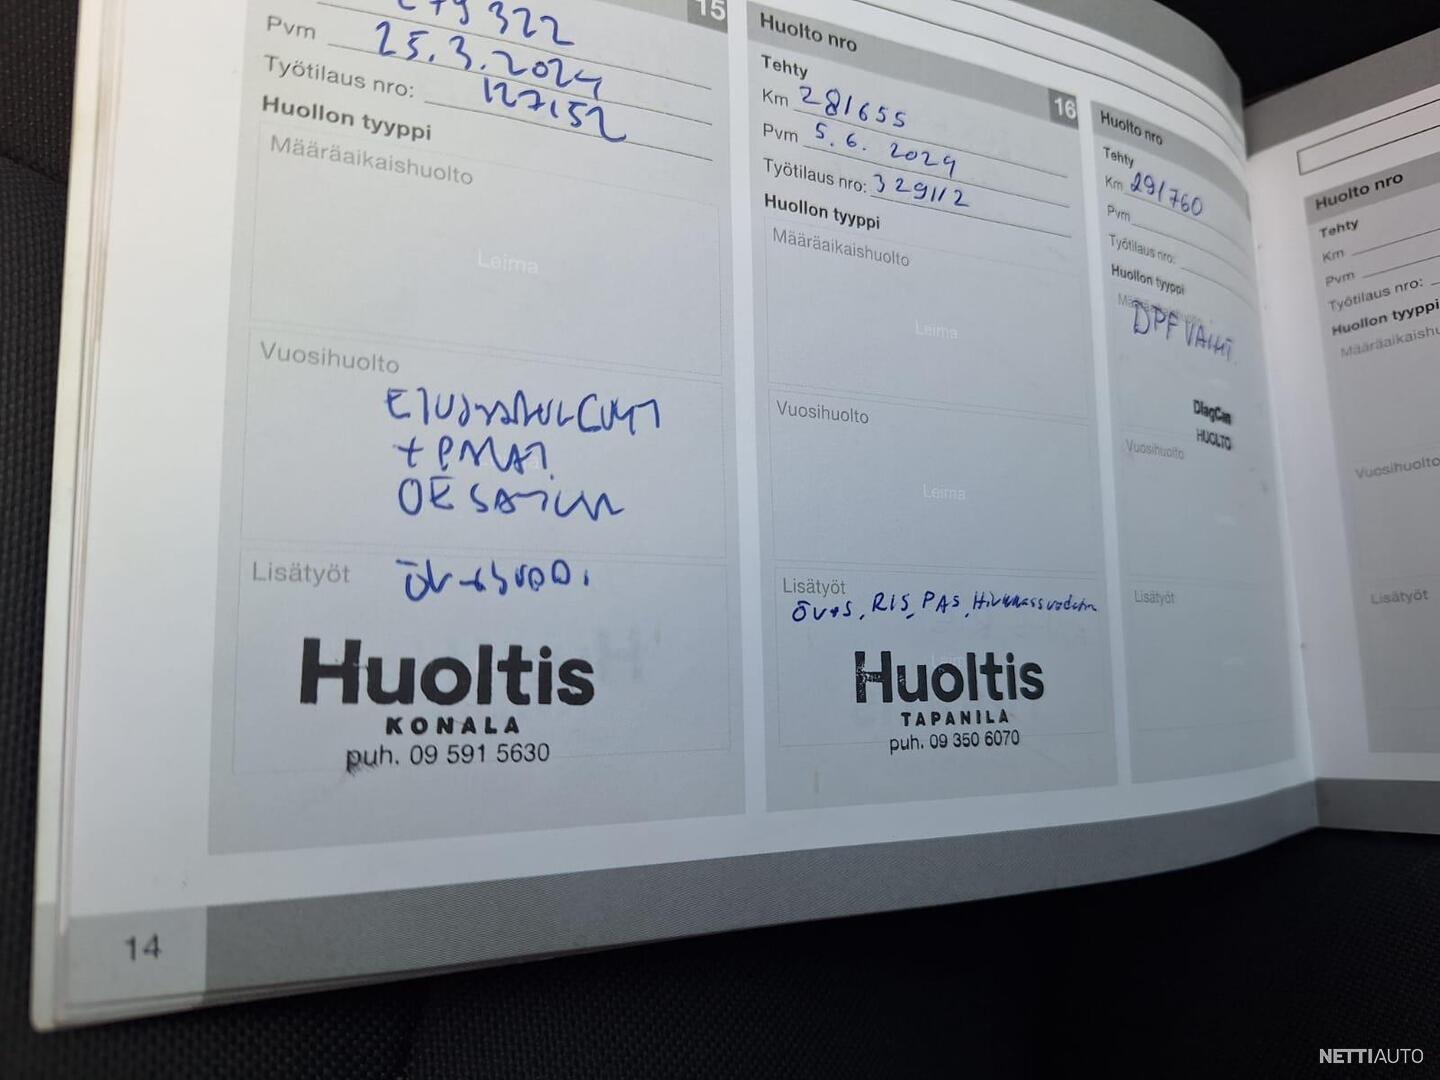 15
279 322
Pvm 25.3.2024
Työtilaus nro: 127152
Huollon tyyppi
Määräaikaishuolto
Leima
Vuosihuolto
+
Lisätyöt
Huoltis
KONALA
puh. 09 591 5630
14
Huolto nro
16
Tehty
Km 281655
Pvm 5.6. 2024
Työtilaus nro: 329112
Huollon tyyppi
Määräaikaishuolto
Leima
Vuosihuolto
Leima
Lisätyöt
ÖV+S, RIS, PAS,
Huoltis
TAPANILA
puh. 09 350 6070
Huolto nro
Tehty
Km 291760
Pvm
Työtilaus nro:
Huollon tyyppi
DPF
DiagCan
HUOLTO
Vuosihuolto
Lisätyöt
Huolto nro
Tehty
Km
Pvm
Työtilaus nro:
Huollon tyyppi
Vuosihuolto
Lisätyöt
NETTIAUTO